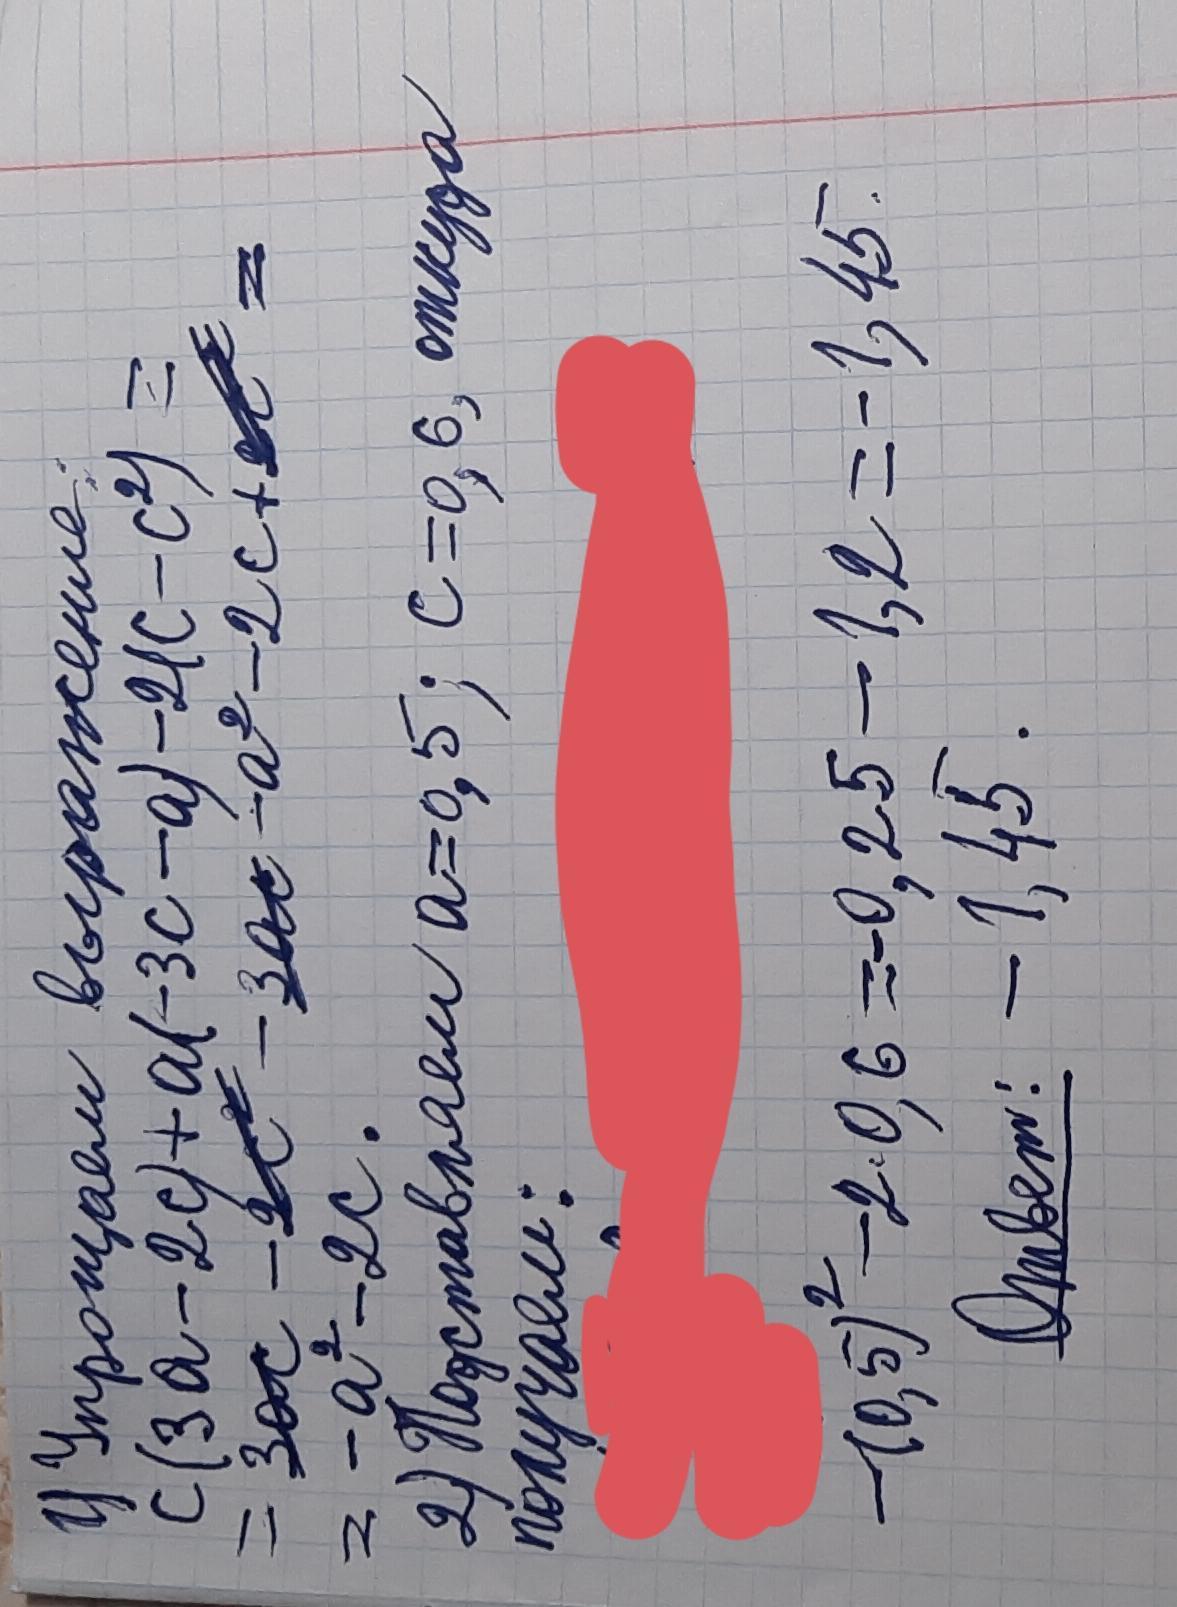 1) Упрощаем выражение:
c(3a-2c)+a(-3c-a)-2(c-c²)=
=3ac-2c²-3ac-a²-2c+2c²=
=-a²-2c.
2) Подставляем a=0,5; c=0,6, откуда
получаем:
-(0,5)²-2·0,6=-0,25-1,2=-1,45.
Ответ: -1,45.